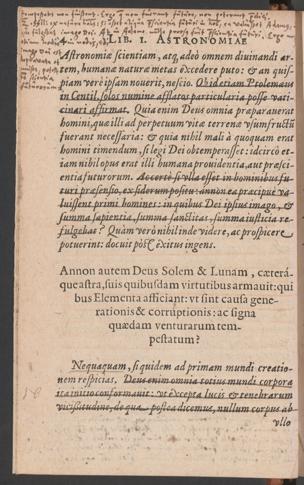 4 LIB. I. ASTRONOMIAE
Astronomiæ scientiam, atq; adeò omnem diuinandi ar-
tem, humanæ naturæ metas excedere puto: & an quis-
piam verè ipsam nouerit, nescio. Ob id etiam Ptolemæus
in Centil. solos numine afflatos particularia posse vati-
cinari affirmat. Quia enim Deus omnia præparauerat
homini, quæ illi ad perpetuum vitæ terrenæ vsum fructũ
fuerant necessaria: & quia nihil mali à quoquam erat
homini timendum, si legi Dei obtemperasset: idcircò et-
iam nihil opus erat illi humana prouidentia, aut præsci-
entia futurorum. Accertè si vlla esset in hominibus fu-
turi præsensio, ex siderum positu: annon ea præcipuè va-
luissent primi homines: in quibus Dei ipsius imago, &
summa sapientia, summa sanctitas, summa iusticia re-
fulgebat? Quàm verò nihil inde videre, ac prospicere
potuerint: docuit põst exitus ingens.
Annon autem Deus Solem & Lunam, cæterá-
que astra, suis quibusdam virtutibus armauit: qui
bus Elementa afficiant: vt sint causa gene-
rationis & corruptionis: ac signa
quædam venturarum tem-
pestatum?
Nequaquam, si quidem ad primam mundi creatio-
nem respicias. Deus enim omnia totius mundi corpora
ita initio conformauit: vt excepta lucis & tenebrarum
vicissitudine, de qua postea dicemus, nullum corpus ab
vllo